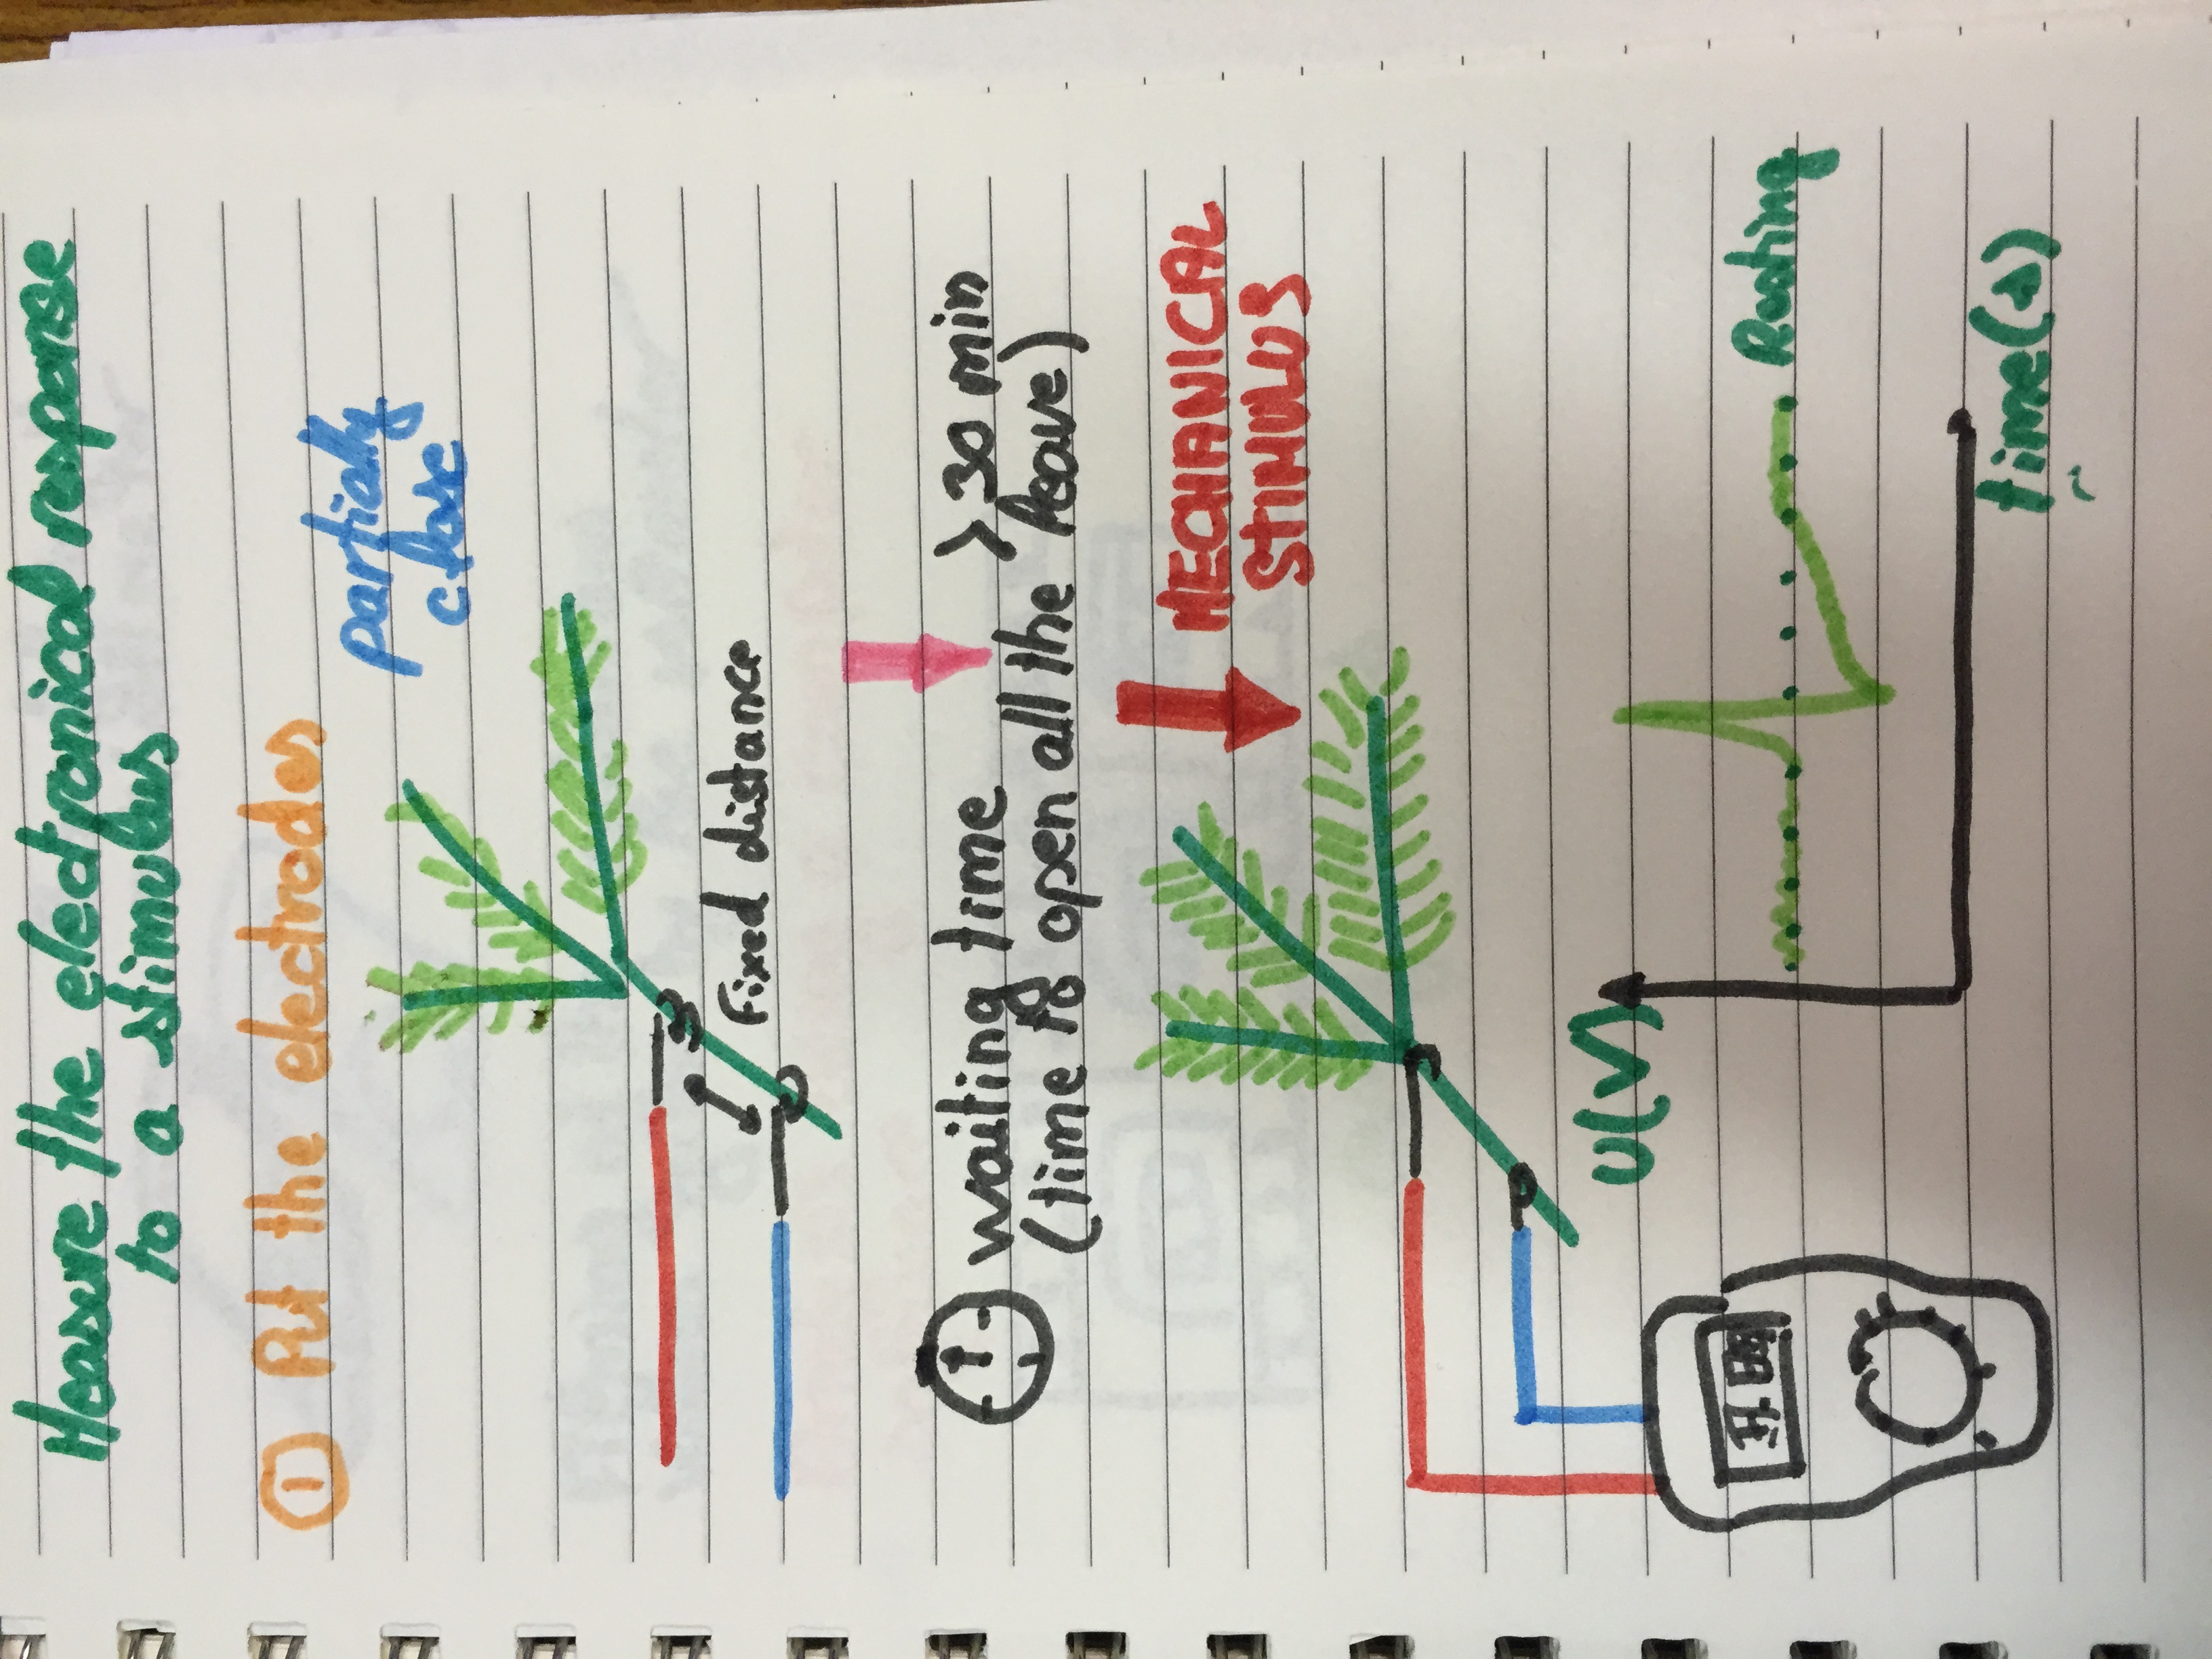 Measure the electronical response
to a stimulus
1 Put the electrodes
partially
close
Fixed distance
waiting time > 30 min
(time to open all the leave)
MECHANICAL
STIMULUS
U(V)
Resting
time(s)